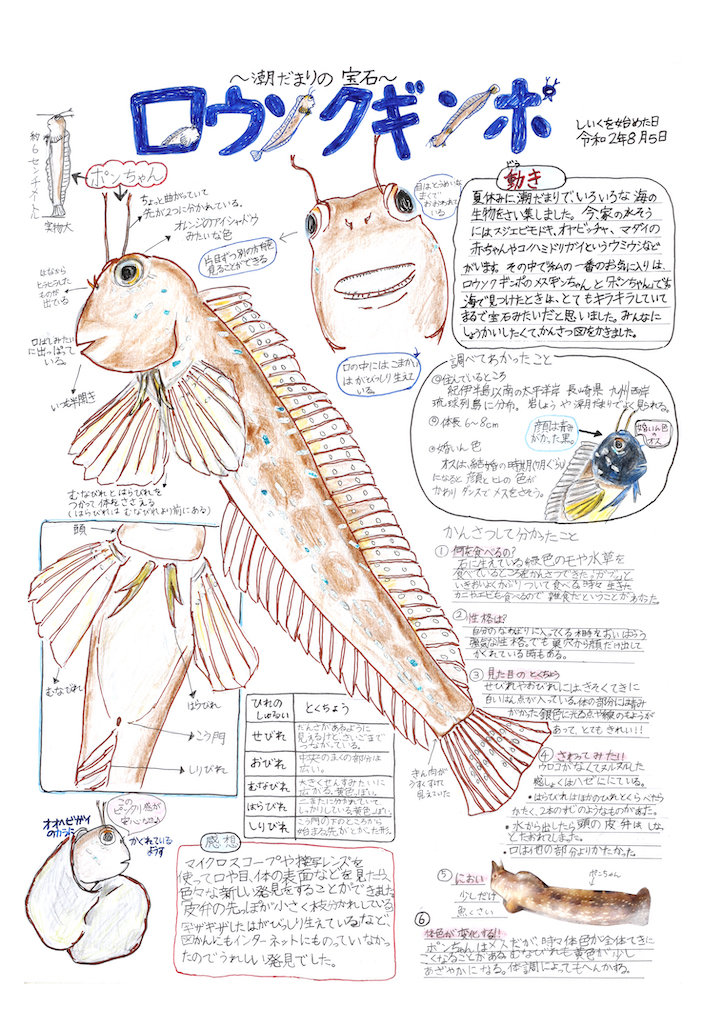 〜潮だまりの 宝石〜
ロウソクギンポ
しいくを始めた日
令和2年8月5日
約6センチメートル
実物大
ポンちゃん
ちょっと曲がっていて
先が2つに分かれている。
オレンジのアイシャドウ
みたいな色
片目ずつ別の方向を
見ることができる
はなから
ヒラヒラした
ものが
出ている
口ばしみたい
に出っぱって
いる。
いつも半開き
目はとうめいな
まくで
おおわれ
ている
口の中にはこまかい
はがびっしり生えて
いる。
むなびれとはらびれを
つかって体をささえる
(はらびれは むなびれより前にある)
動き
夏休みに潮だまりで、いろいろな海の
生物をさい集しました。今、家の水そう
にはスジエビモドキ、オヤビッチャ、マダイの
赤ちゃんやコノハミドリガイというウミウシなど
がいます。その中で私の一番のお気に入りは、
ロウソクギンポのメス「ギンちゃん」と「ポンちゃん」です。
海で見つけたときは、とてもキラキラしていて
まるで宝石みたいだと思いました。みんなに
しょうかいしたくて、かんさつ図をかきました。
調べてわかったこと
◎住んでいるところ
紀伊半島以南の太平洋岸 長崎県 九州西岸
琉球列島に分布。岩しょうや潮だまりでよく見られる。
◎体長 6〜8cm
◎婚いん色
オスは、結婚の時期(7月くらい)
になると 顔とヒレの色が
かわり ダンスでメスをさそう。
顔は青み
がかった黒。
婚いん色
の
オス
かんさつして分かったこと
① 何を食べるの?
石に生えている緑色のモや水草を
食べているところをかんさつできた。「ガブッ」と
いきおいよくかぶりついて食べる。時々 生きた
カニやエビも食べるので 雑食だということがわかった。
② 性格は?
自分のなわばりに入ってくる相手をおいはらう
強気な性格。でも 巣穴から顔だけ出して
かくれている時もある。
③ 見た目のとくちょう
せびれやおびれには、きそくてきに
白いはん点が入っている。体の部分には青み
がかった銀色に光る点や線のもようが
あって、とてもきれい!!
④ さわってみた!!
ウロコがなくてヌルヌルした
感しょくはハゼににている。
・はらびれはほかのひれとくらべたら
かたく、2本のぼうのようなものがあった。
・水から出したら頭の皮弁はしな
っとたおれてしまった。
・口は他の部分よりかたかった。
⑤ におい
少しだけ
魚くさい
ポンちゃん
⑥
体色が変化する!!
ポンちゃんはメスだが、時々体色が全体てきに
こくなることがある。むなびれも黄色が少し
あざやかになる。体調によってもへんかする。
頭
むなびれ
はらびれ
こう門
しりびれ
きん肉が
うすくすけて
見えていた
ひれの
しゅるい
とくちょう
せびれ
だんさがあるように
見えるけど、さいごまで
つながっている。
おびれ
中央のまくの部分は
広い。
むなびれ
大きくせんすみたいに
広がる。黄色っぽい。
はらびれ
二またに分かれていて
しっかりしている黄色っぽい。
しりびれ
こう門の下のところから
始まる。先がとがった形。
感想
マイクロスコープや接写レンズを
使って口や目、体の表面などを見たら、
色々な新しい発見をすることができました。
「皮弁の先っぽが小さく枝分かれしている」
「ギザギザしたはがびっしり生えている」など、
図かんにもインターネットにものっていなかっ
たのでうれしい発見でした。
オオヘビガイ
のからに
かくれている
ようす